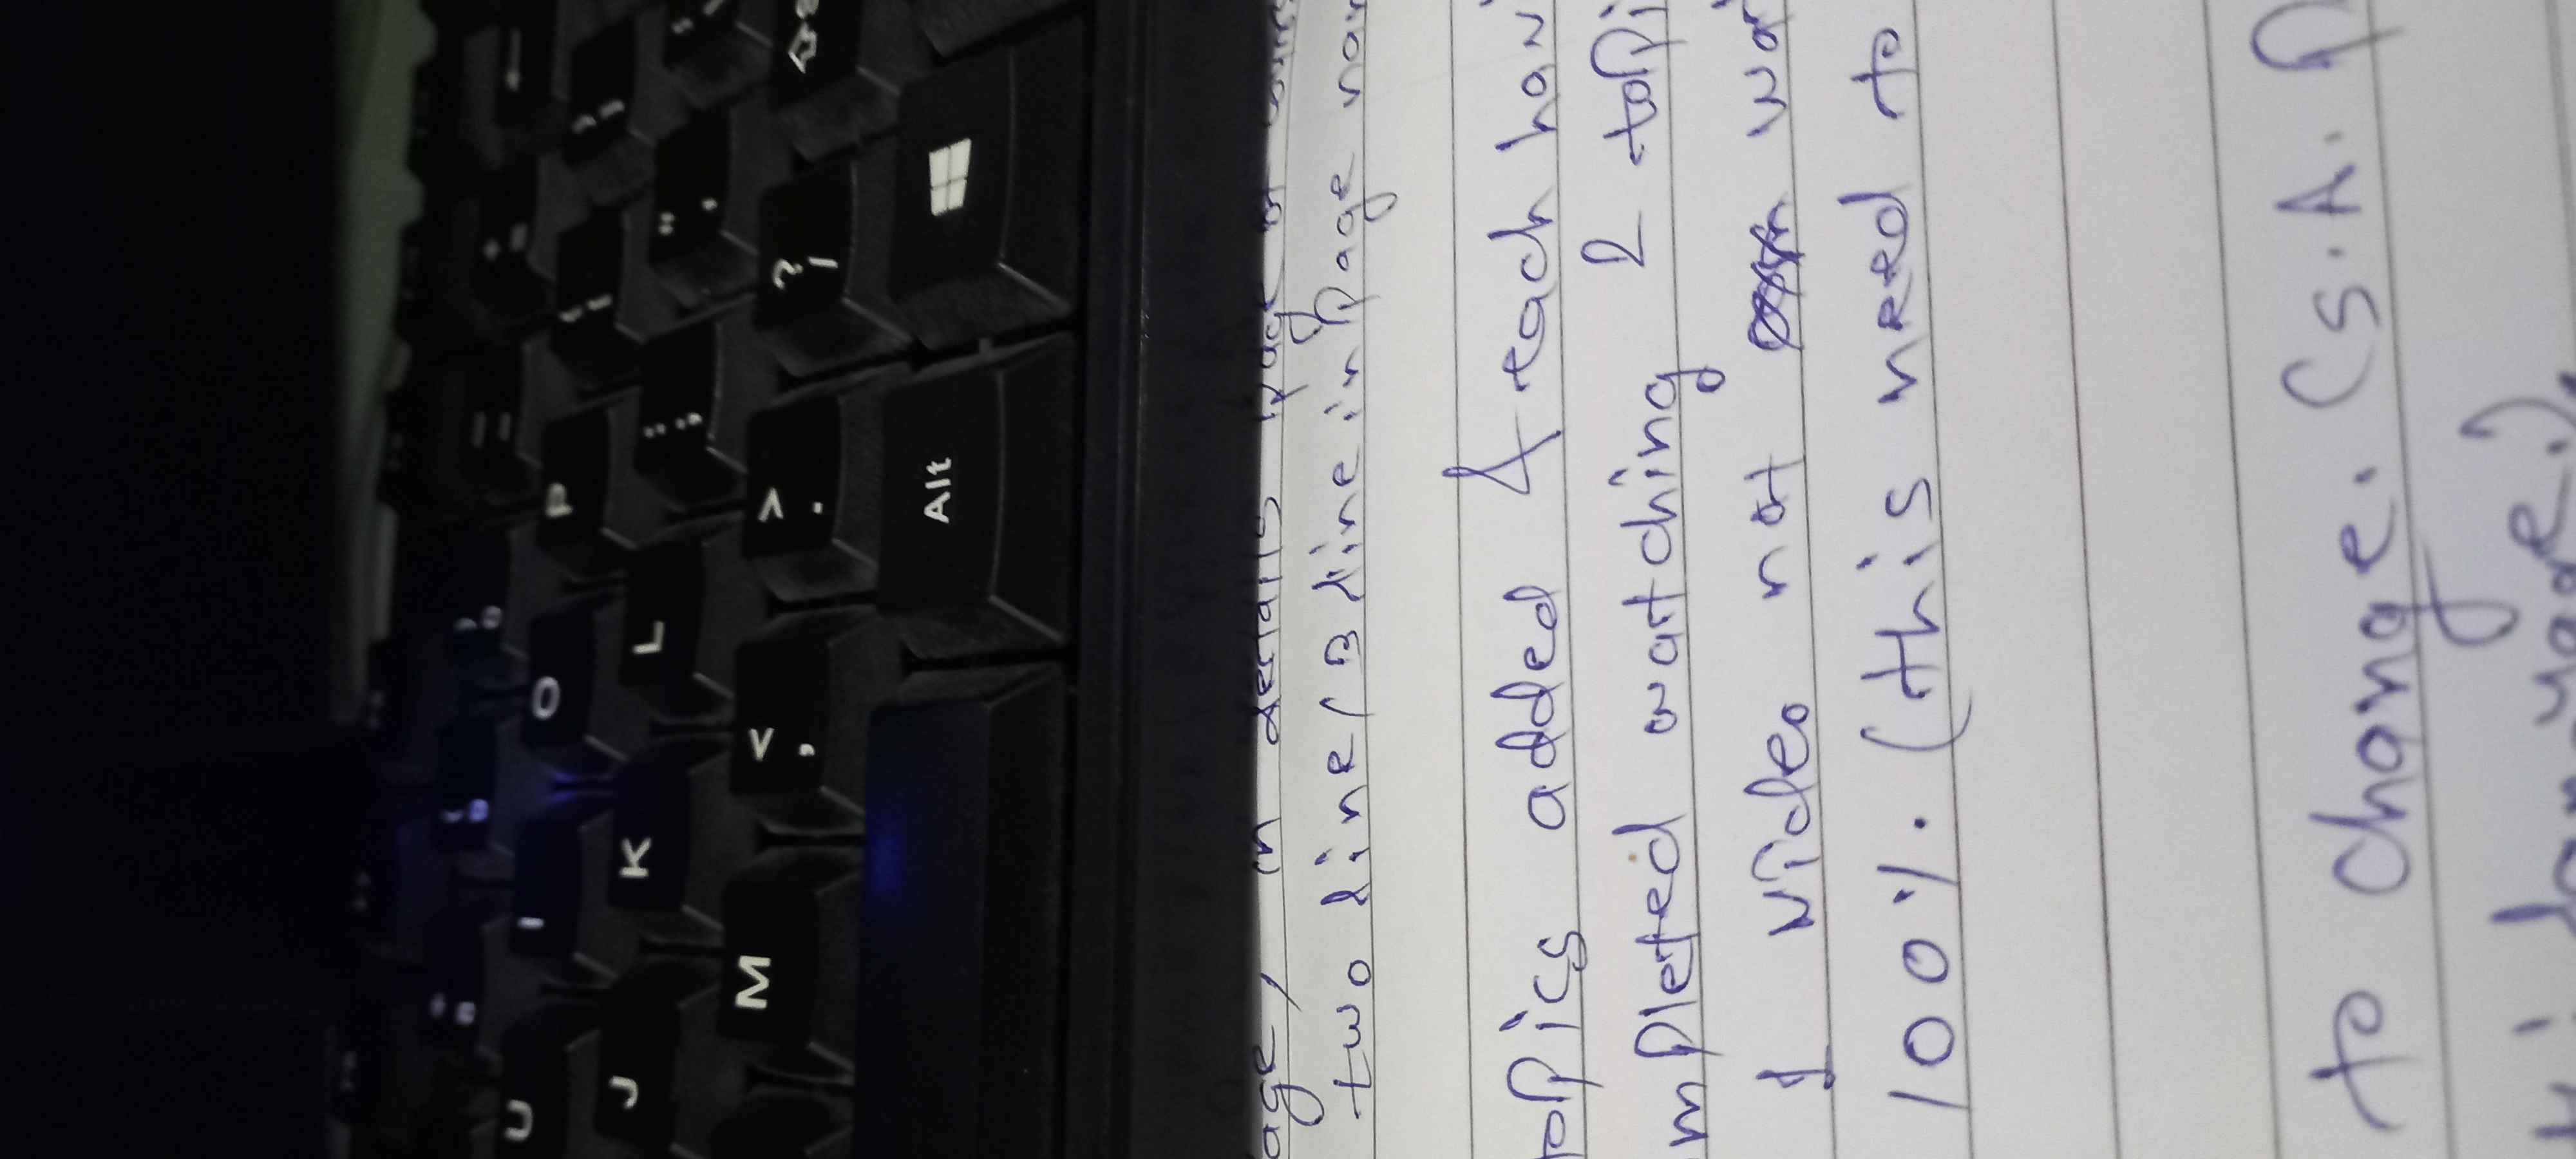 U I O P
J K L
M < , > . ? /
Alt
age, in details page of
two line / 3 line in page
topics added & each
mpleted watching 2
1 video not
100%. (this need to
to change. (S.A.
language.).